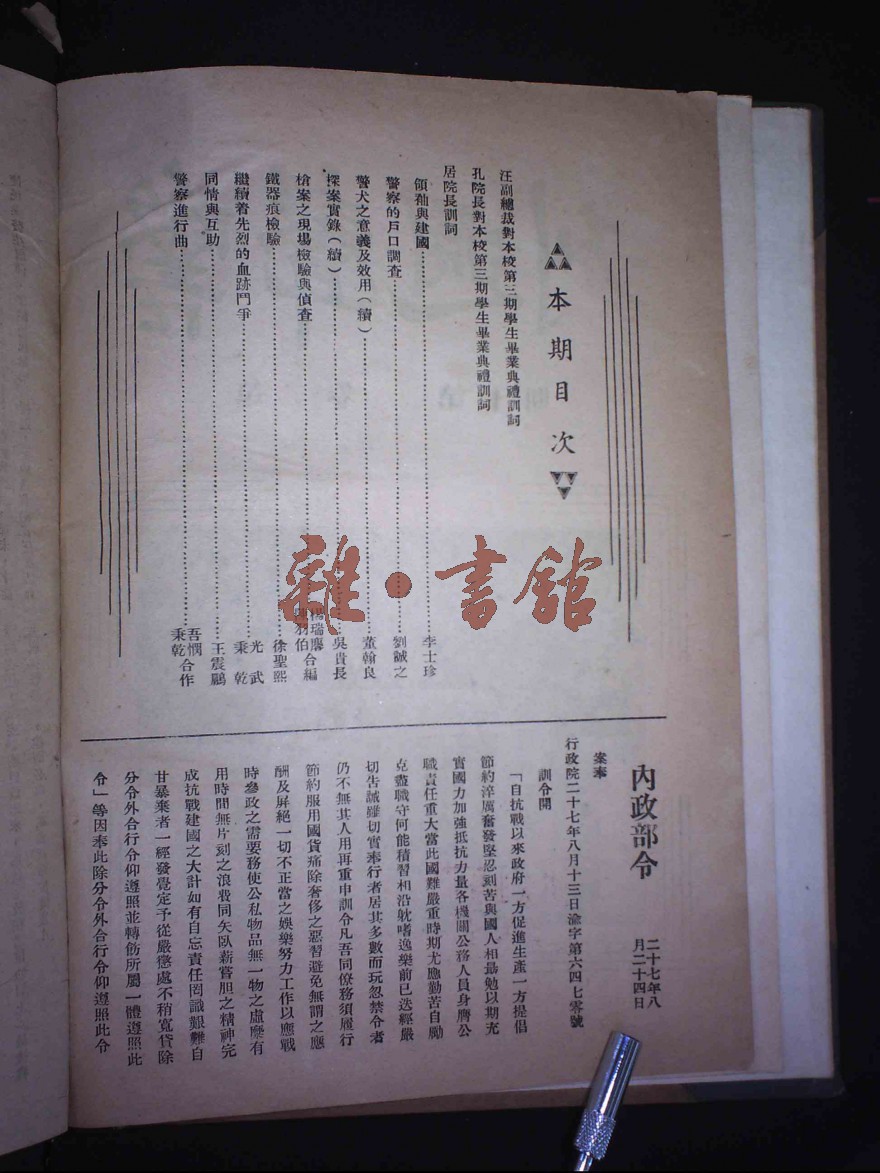 本期目次
汪副總裁對本校第三期學生畢業典禮訓詞
孔院長對本校第三期學生畢業典禮訓詞
居院長訓詞
領袖與建國……李士珍
警察的戶口調查……劉誠之
警犬之意義及效用(續)……董翰良
探案實錄(續)……吳貴長
槍案之現場檢驗與偵查……楊瑞麐 陳羽伯 合編
鐵器痕檢驗……徐聖熙
繼續着先烈的血跡鬥爭……光武 秉乾
同情與互助……王震鵬
警察進行曲……吾憫 秉乾 合作
內政部令 二十七年八月二十四日
案奉
行政院二十七年八月十三日渝字第六四七零號
訓令開
「自抗戰以來政府一方促進生產一方提倡
節約淬厲奮發堅忍刻苦與國人相勗勉以期充
實國力加強抵抗力量各機關公務人員身膺公
職責任重大當此國難嚴重時期尤應勤苦自勵
克盡職守何能積習相沿躭嗜逸樂前已迭經嚴
切告誡雖切實奉行者居其多數而玩忽禁令者
仍不無其人用再重申訓令凡吾同僚務須履行
節約服用國貨痛除奢侈之惡習避免無謂之應
酬及屏絕一切不正當之娛樂努力工作以應戰
時參政之需要務使公私物品無一物之虛糜有
用時間無片刻之浪費同矢臥薪嘗胆之精神完
成抗戰建國之大計如有自忘責任罔識艱難自
甘暴棄者一經發覺定予從嚴懲處不稍寬貸除
分令外合行令仰遵照並轉飭所屬一體遵照此
令」等因奉此除分令外合行令仰遵照此令
雜·書館